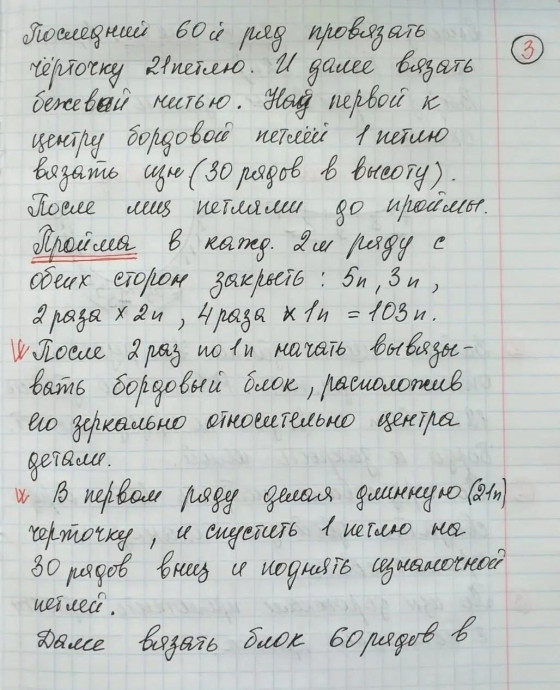 Последний 60й ряд провязать
чёрточку 21 петлю. И далее вязать
бежевой нитью. Над первой к
центру бордовой петлёй 1 петлю
вязать изн (30 рядов в высоту).
После лиц петлями до проймы.
Пройма в кажд. 2м ряду с
обеих сторон закрыть: 5п, 3п,
2 раза × 2п, 4 раза × 1п = 103п.
После 2 раз по 1п начать вывязы-
вать бордовый блок, расположив
его зеркально относительно центра
детали.
В первом ряду делая длинную (21п)
черточку, и спустить 1 петлю на
30 рядов вниз и поднять изнаночной
петлей.
Далее вязать блок 60 рядов в
3